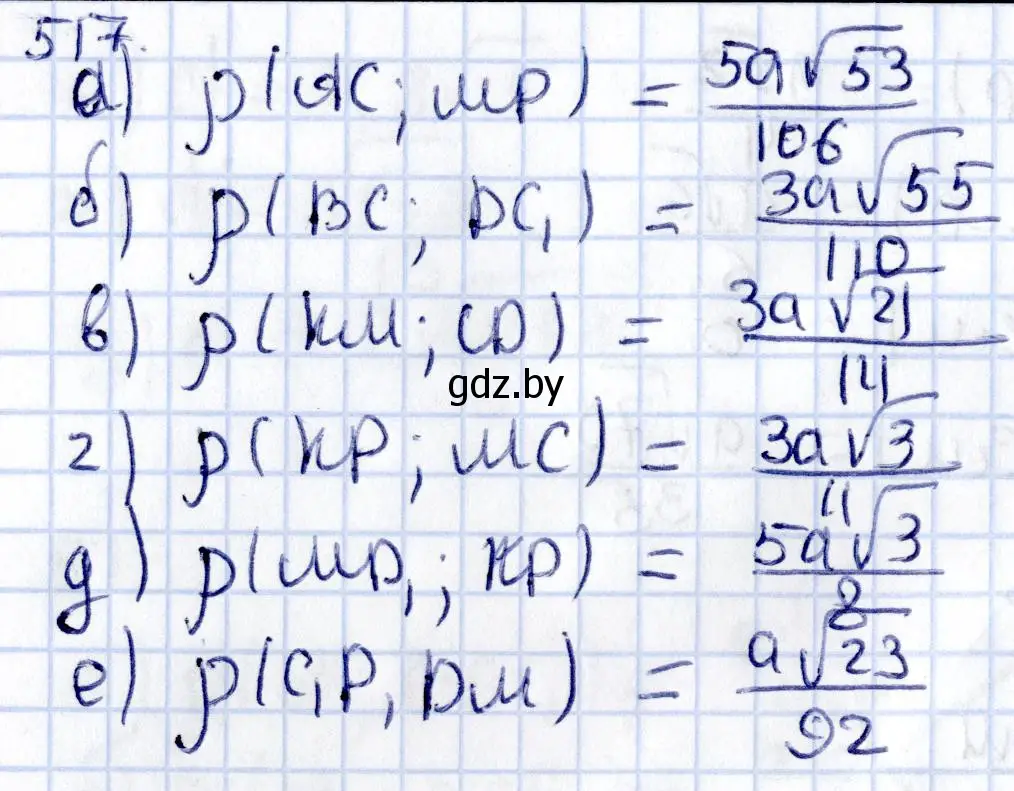 517.
а) ρ(AC; MP) = 5a√53/106
б) ρ(BC; DC₁) = 3a√55/110
в) ρ(KM; CD) = 3a√21/14
gdz.by
г) ρ(KP; MC) = 3a√3/11
д) ρ(MD₁; KP) = 5a√3/8
е) ρ(C₁P, DM) = a√23/92